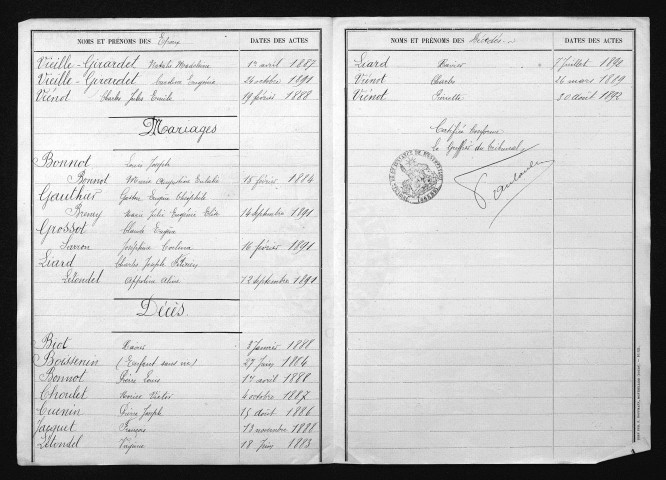 NOMS ET PRÉNOMS DES Epoux
DATES DES ACTES
Vieille-Girardet Natalie Madeleine 1er avril 1887
Vieille-Girardet Eugénie 26 octobre 1891
Viénot Charles Jules Emile 19 février 1888
Mariages
Bonnot Louis Joseph
Bonnot Marie Augustine Eulalie 18 février 1884
Gauthier Gustave Eugène Théophile
Bremy Marie Julie Eugénie Elise 14 septembre 1891
Grossot Claude Eugène
Joséphine 16 février 1891
Liard Charles Joseph
Létondel Appoline Aline 12 septembre 1891
Décès
Biot Xavier 3 janvier 1888
Boissenin (Enfant sans vie) 27 juin 1884
Bonnot Pierre Louis 17 avril 1888
Choulet 4 octobre 1887
Cuenin Pierre Joseph 15 août 1886
Jacquet François 13 novembre 1888
Létondel Virginie 18 juin 1883
NOMS ET PRÉNOMS DES Décédés
DATES DES ACTES
Liard Xavier 7 juillet 1890
Viénot Charles 26 mars 1889
Viénot Pierrette 30 août 1892
Certifié conforme
Le Greffier du Tribunal